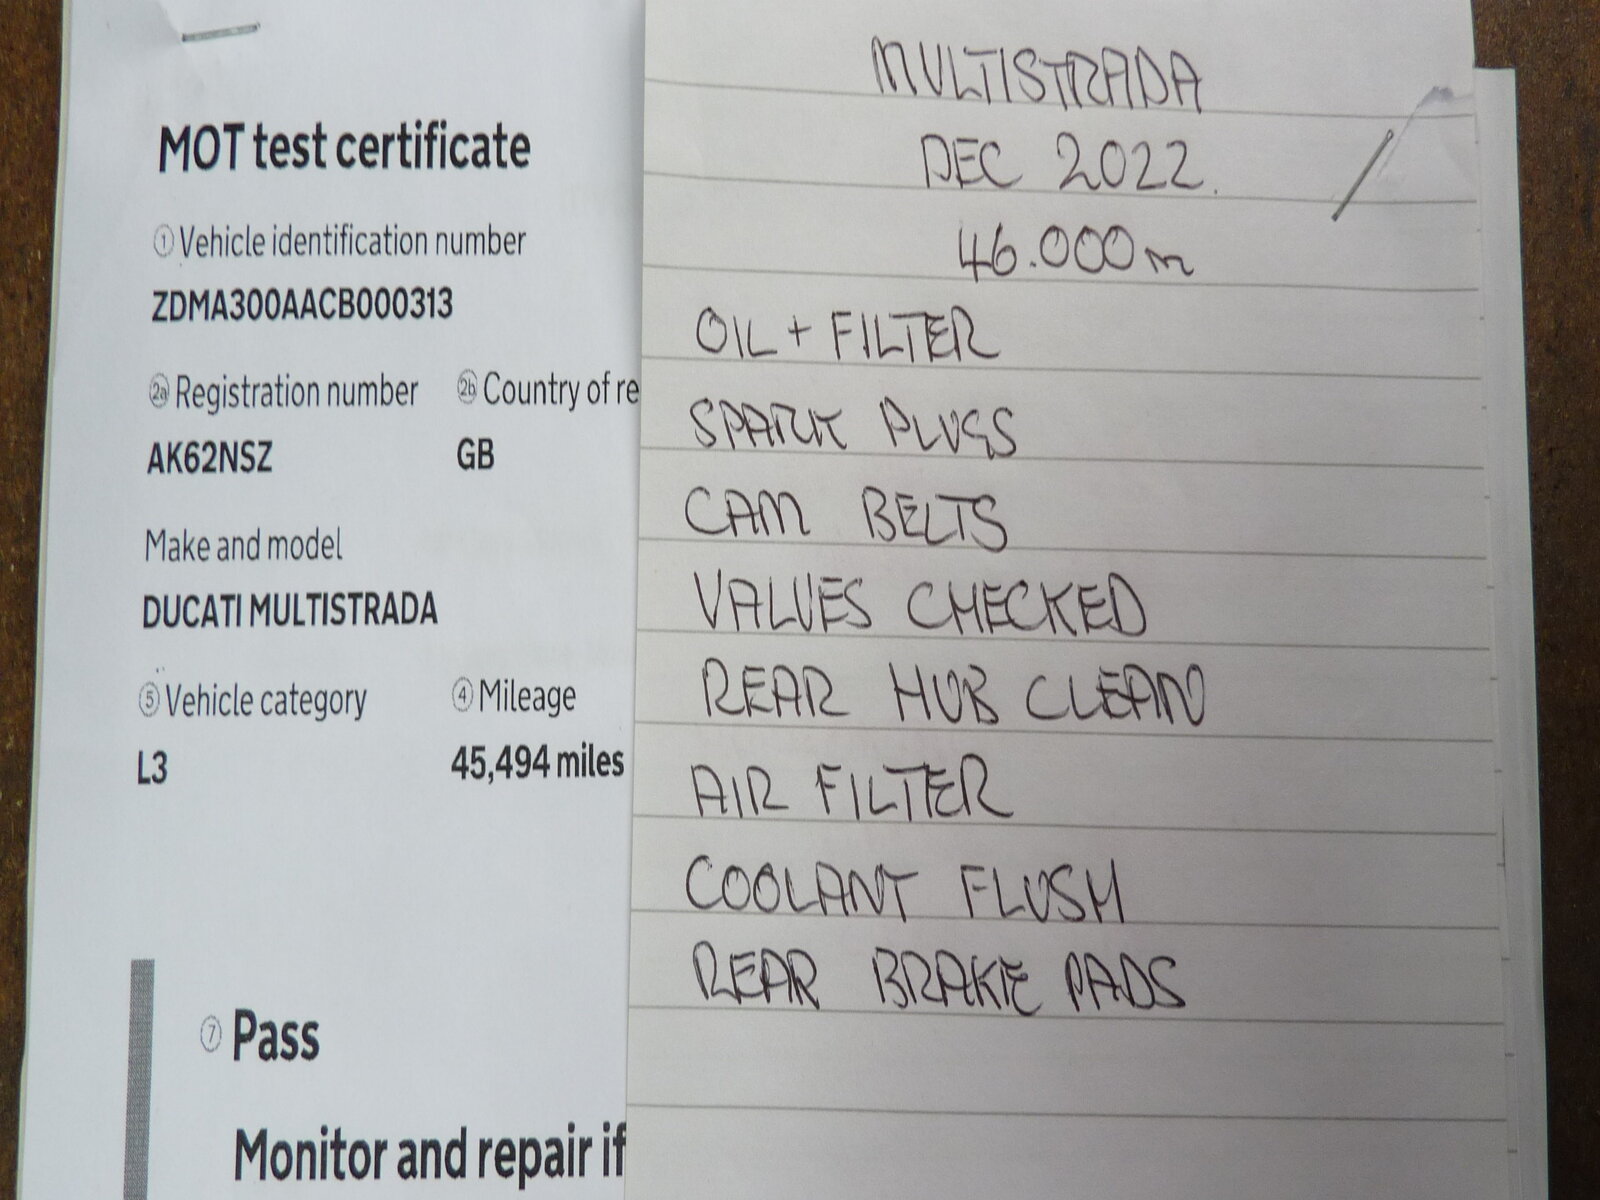 MOT test certificate
① Vehicle identification number
ZDMA300AACB000313
2a Registration number 2b Country of re
AK62NSZ GB
Make and model
DUCATI MULTISTRADA
⑤ Vehicle category ④ Mileage
L3 45,494 miles
⑦ Pass
Monitor and repair if
MULTISTRADA
DEC 2022.
46.000m
OIL + FILTER
SPARK PLUGS
CAM BELTS
VALVES CHECKED
REAR HUB CLEAN
AIR FILTER
COOLANT FLUSH
REAR BRAKE PADS